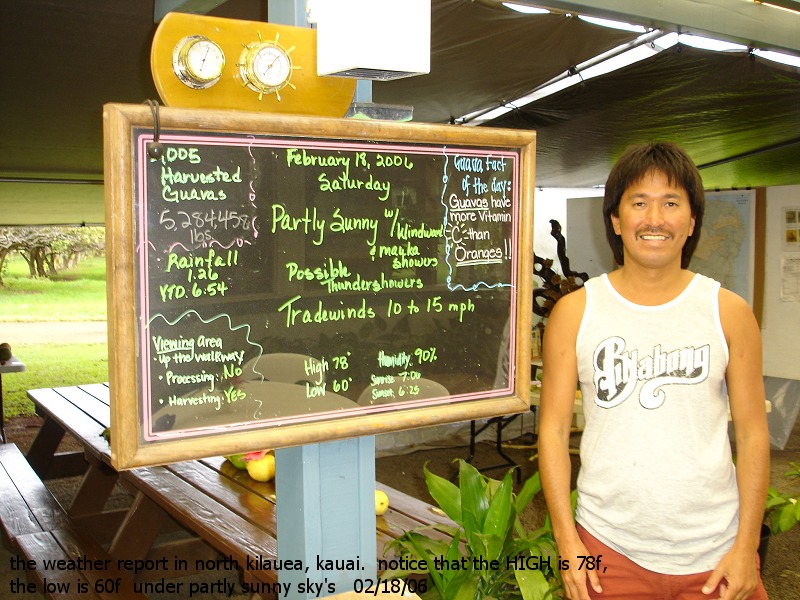 2005
Harvested
Guavas
5,284,458
lbs
Rainfall
1.26
YTD. 6.54
February 18, 2006
Saturday
Partly Sunny w/ Windward
& mauka
showers
Possible
Thundershowers
Tradewinds 10 to 15 mph
Guava Fact
of the day:
Guavas have
more Vitamin
"C" than
Oranges!!
Viewing area
up the walkway
• Processing: No
• Harvesting: Yes
High 78°
Low 60°
Humidity 90%
Sunrise 7:00
Sunset 6:25
Billabong
the weather report in north kilauea, kauai. notice that the HIGH is 78f,
the low is 60f under partly sunny sky's 02/18/06